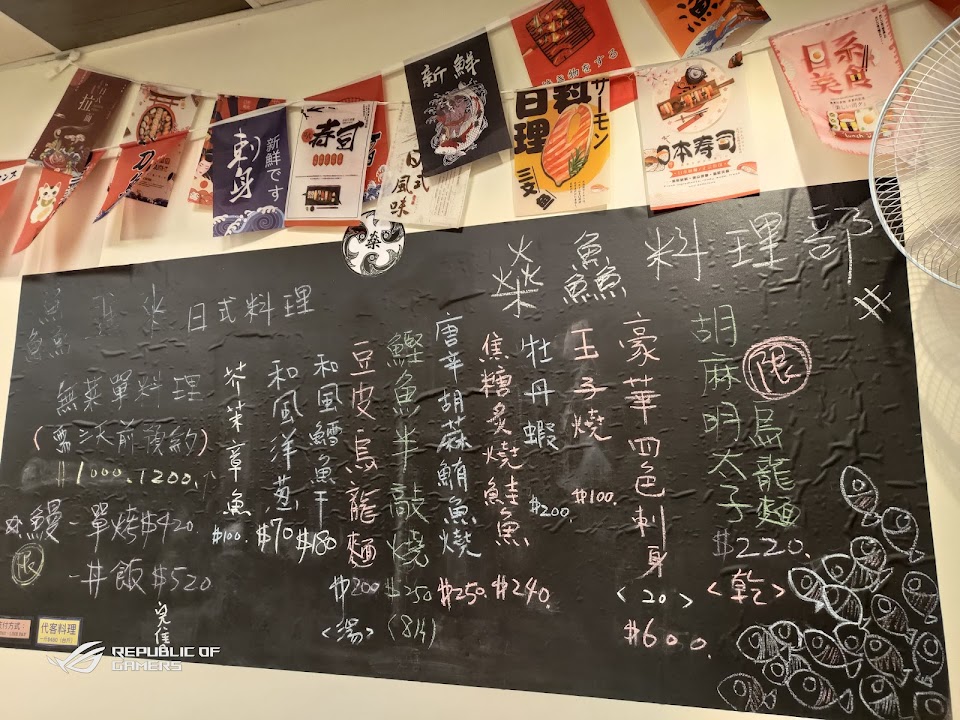 新鮮
刺身
新鮮です
寿司
日式風味
日料理
サーモン
三文
日本寿司
日系美食
き物をする
鱻 料理部
日式料理
胡麻明太子烏龍麵
限
$220.
<乾>
豪華四色刺身
<20>
$600.
玉子燒
$100.
牡丹蝦
$200.
焦糖炙燒鮭魚
$240.
唐辛胡麻鮪魚燒
$250.
鰹魚半敲燒
$250
豆皮烏龍麵
$200
<湯>
和風鱈魚干
$180
和風洋蔥
$70
芥茉章魚
$100.
無菜單料理
(需三天前預約)
$1000.1200.
鰻-單烤$420
-丼飯$520
限
代客料理
付方式:
REPUBLIC OF
GAMERS